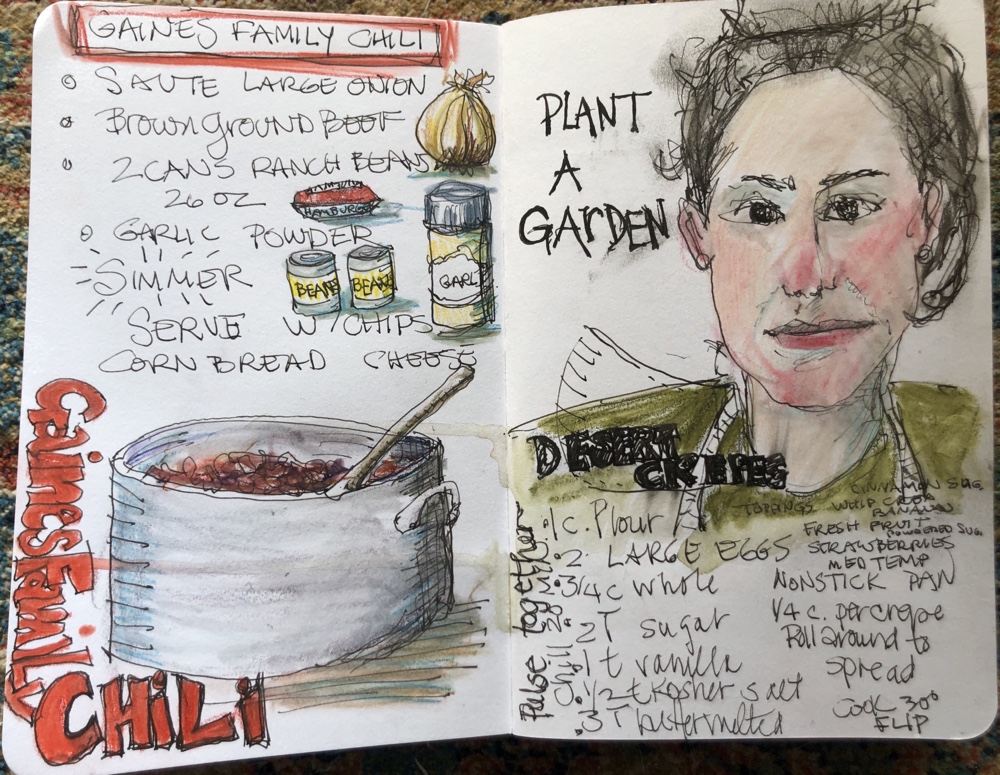 GAINES FAMILY CHILI
SAUTE LARGE ONION
Brown Ground BEEF
2 CANS RANCH BEANS
26 OZ
HAMBURG
GARLIC POWDER
SIMMER
BEANS
BEANS
GARL
SERVE W/ CHIPS
CORN BREAD CHEESE
Gaines Family
CHiLi
PLANT
A
GARDEN
DESERT
CREPES
1 c. Flour
2 LARGE EGGS
3/4 c whole
2 T sugar
1 t vanilla
1/2 t Kosher salt
3 T butter melted
Pulse together
Chill
CINNAMAN SUG.
TOPPINGS WHIP CREA
BANANAS
FRESH FRUIT
POWDERED SUG.
STRAWBERRIES
MED TEMP
NONSTICK PAN
1/4 c. per crepe
Roll around to
spread
Cook 30"
FLIP